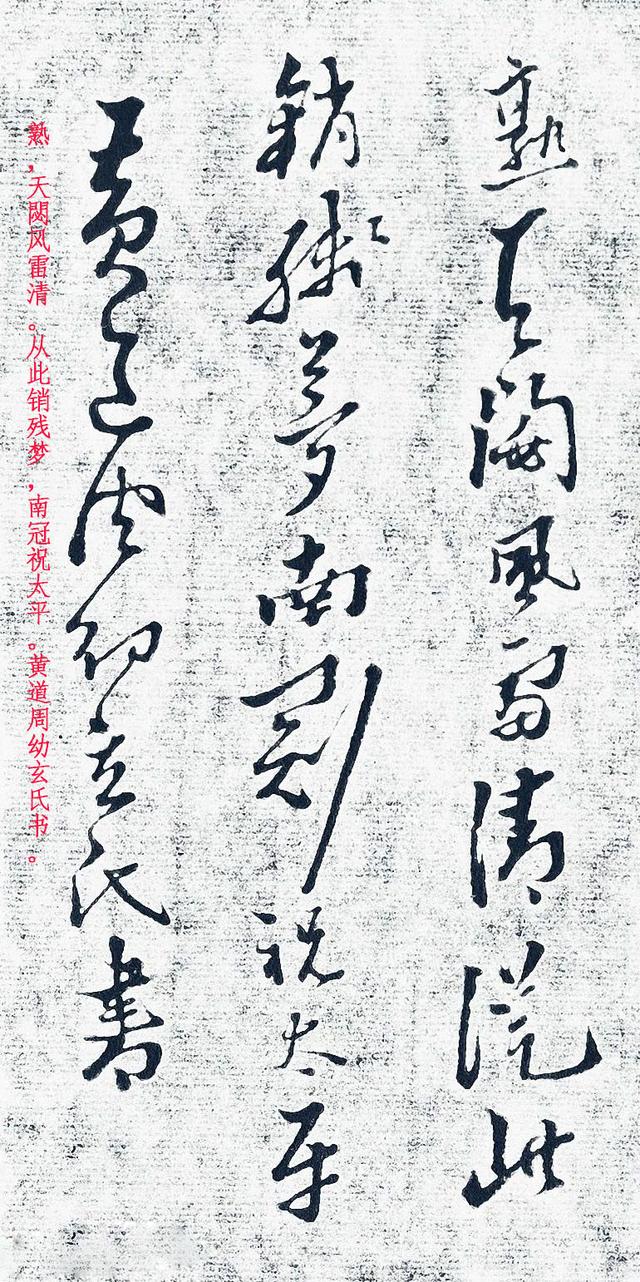 熟天闕風雷清從此
銷殘夢南冠祝太平
黄道周幼玄氏書
熟,天阙风雷清。从此销残梦,南冠祝太平。黄道周幼玄氏书。